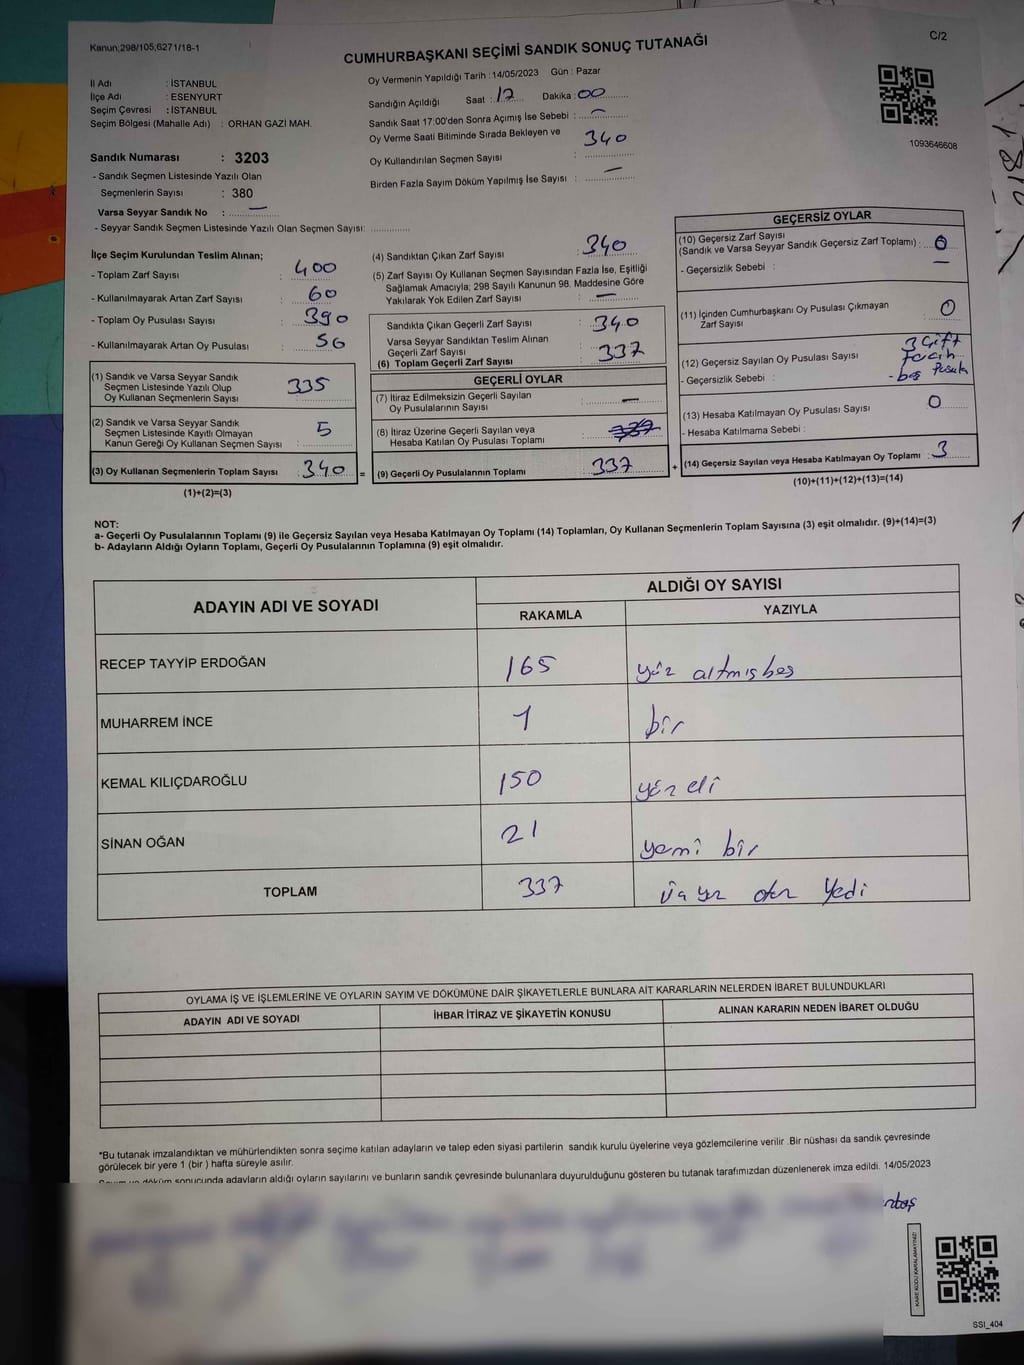 Kanun;298/105,6271/18-1
C/2
CUMHURBAŞKANI SEÇİMİ SANDIK SONUÇ TUTANAĞI
İl Adı : İSTANBUL
İlçe Adı : ESENYURT
Seçim Çevresi : İSTANBUL
Seçim Bölgesi (Mahalle Adı) : ORHAN GAZİ MAH.
Sandık Numarası : 3203
- Sandık Seçmen Listesinde Yazılı Olan
Seçmenlerin Sayısı : 380
Varsa Seyyar Sandık No : —
- Seyyar Sandık Seçmen Listesinde Yazılı Olan Seçmen Sayısı:
Oy Vermenin Yapıldığı Tarih :14/05/2023 Gün : Pazar
Sandığın Açıldığı Saat : 17 Dakika : 00
Sandık Saat 17:00'den Sonra Açımış İse Sebebi : —
Oy Verme Saati Bitiminde Sırada Bekleyen ve
Oy Kullandırılan Seçmen Sayısı : 340
Birden Fazla Sayım Döküm Yapılmış İse Sayısı : —
1093646608
İlçe Seçim Kurulundan Teslim Alınan;
- Toplam Zarf Sayısı : 400
- Kullanılmayarak Artan Zarf Sayısı : 60
- Toplam Oy Pusulası Sayısı : 390
- Kullanılmayarak Artan Oy Pusulası : 50
(1) Sandık ve Varsa Seyyar Sandık
Seçmen Listesinde Yazılı Olup
Oy Kullanan Seçmenlerin Sayısı : 335
(2) Sandık ve Varsa Seyyar Sandık
Seçmen Listesinde Kayıtlı Olmayan
Kanun Gereği Oy Kullanan Seçmen Sayısı : 5
(3) Oy Kullanan Seçmenlerin Toplam Sayısı : 340 =
(1)+(2)=(3)
(4) Sandıktan Çıkan Zarf Sayısı : 340
(5) Zarf Sayısı Oy Kullanan Seçmen Sayısından Fazla İse, Eşitliği
Sağlamak Amacıyla; 298 Sayılı Kanunun 98. Maddesine Göre
Yakılarak Yok Edilen Zarf Sayısı : —
Sandıkta Çıkan Geçerli Zarf Sayısı : 340
Varsa Seyyar Sandıktan Teslim Alınan
Geçerli Zarf Sayısı
(6) Toplam Geçerli Zarf Sayısı : 337
GEÇERLİ OYLAR
(7) İtiraz Edilmeksizin Geçerli Sayılan
Oy Pusulalarının Sayısı : —
(8) İtiraz Üzerine Geçerli Sayılan veya
Hesaba Katılan Oy Pusulası Toplamı : 337
(9) Geçerli Oy Pusulalarının Toplamı : 337 +
GEÇERSİZ OYLAR
(10) Geçersiz Zarf Sayısı
(Sandık ve Varsa Seyyar Sandık Geçersiz Zarf Toplamı) : 0
- Geçersizlik Sebebi : —
(11) İçinden Cumhurbaşkanı Oy Pusulası Çıkmayan
Zarf Sayısı : 0
(12) Geçersiz Sayılan Oy Pusulası Sayısı : 3 Çift
- Geçersizlik Sebebi : - boş
(13) Hesaba Katılmayan Oy Pusulası Sayısı : 0
- Hesaba Katılmama Sebebi :
(14) Geçersiz Sayılan veya Hesaba Katılmayan Oy Toplamı : 3
(10)+(11)+(12)+(13)=(14)
NOT:
a- Geçerli Oy Pusulalarının Toplamı (9) ile Geçersiz Sayılan veya Hesaba Katılmayan Oy Toplamı (14) Toplamları, Oy Kullanan Seçmenlerin Toplam Sayısına (3) eşit olmalıdır. (9)+(14)=(3)
b- Adayların Aldığı Oyların Toplamı, Geçerli Oy Pusulalarının Toplamına (9) eşit olmalıdır.
ADAYIN ADI VE SOYADI
ALDIĞI OY SAYISI
RAKAMLA YAZIYLA
RECEP TAYYİP ERDOĞAN 165 yüz altmışbeş
MUHARREM İNCE 1 bir
KEMAL KILIÇDAROĞLU 150 yüz elli
SİNAN OĞAN 21 yirmi bir
TOPLAM 337 üç yüz otuz yedi
OYLAMA İŞ VE İŞLEMLERİNE VE OYLARIN SAYIM VE DÖKÜMÜNE DAİR ŞİKAYETLERLE BUNLARA AİT KARARLARIN NELERDEN İBARET BULUNDUKLARI
ADAYIN ADI VE SOYADI İHBAR İTİRAZ VE ŞİKAYETİN KONUSU ALINAN KARARIN NEDEN İBARET OLDUĞU
*Bu tutanak imzalandıktan ve mühürlendikten sonra seçime katılan adayların ve talep eden siyasi partilerin sandık kurulu üyelerine veya gözlemcilerine verilir .Bir nüshası da sandık çevresinde
görülecek bir yere 1 (bir ) hafta süreyle asılır.
Sayım ve döküm sonucunda adayların aldığı oyların sayılarını ve bunların sandık çevresinde bulunanlara duyurulduğunu gösteren bu tutanak tarafımızdan düzenlenerek imza edildi. 14/05/2023
KARE KODU KARALAMAYINIZ!
SSI_404